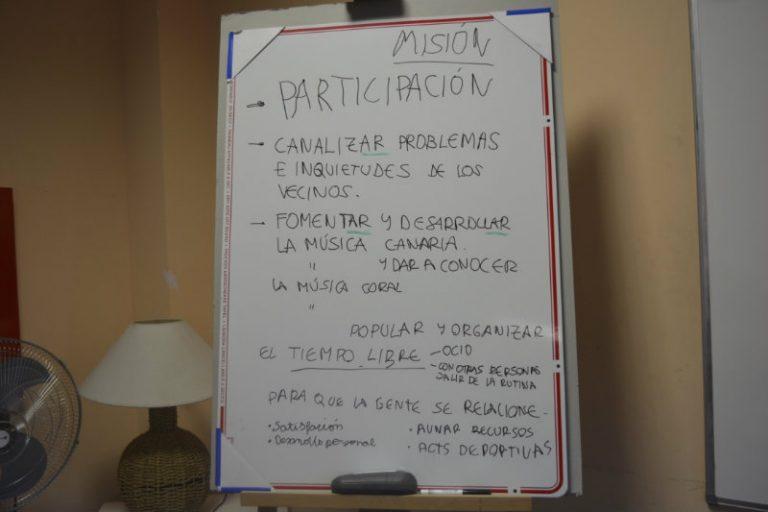 MISIÓN
- PARTICIPACIÓN
- CANALIZAR PROBLEMAS
E INQUIETUDES DE LOS
VECINOS.
- FOMENTAR Y DESARROLLAR
LA MÚSICA CANARIA.
" Y DAR A CONOCER
LA MÚSICA CORAL
"
POPULAR Y ORGANIZAR
EL TIEMPO LIBRE - OCIO
- CON OTRAS PERSONAS
SALIR DE LA RUTINA
PARA QUE LA GENTE SE RELACIONE -
• Satisfacción • AUNAR RECURSOS
• Desarrollo personal • ACTS DEPORTIVAS